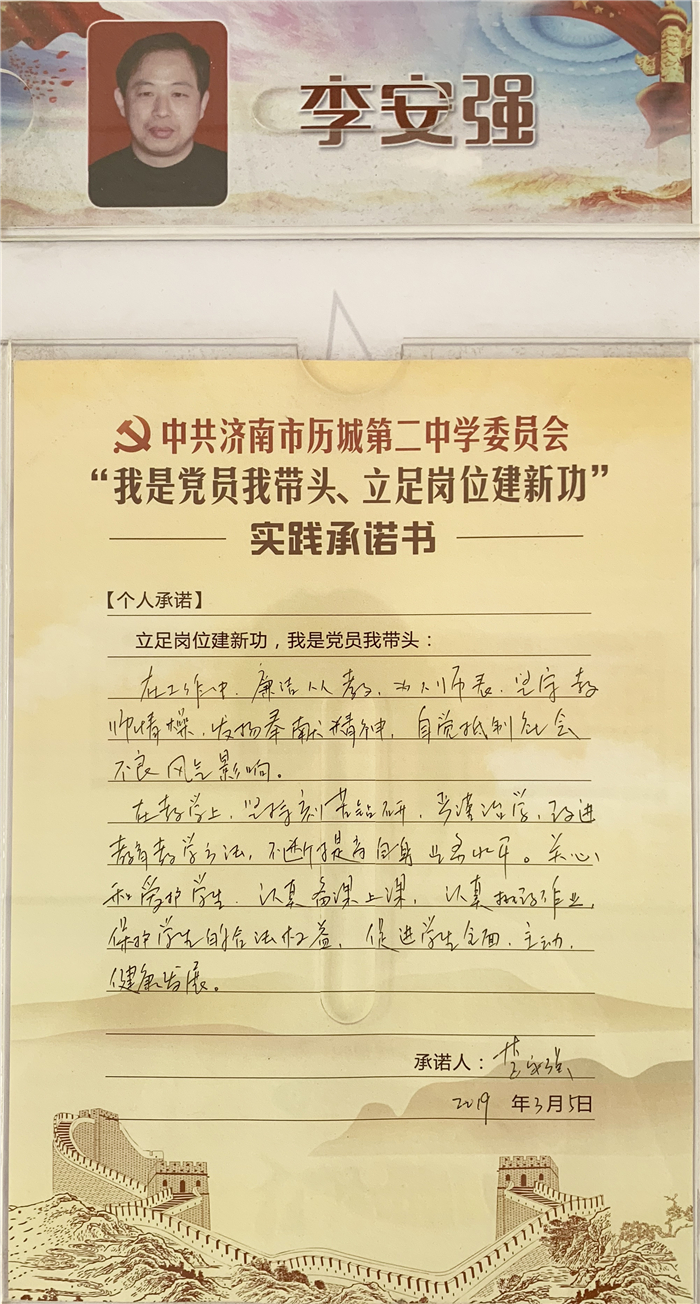 李安强
中共济南市历城第二中学委员会
“我是党员我带头、立足岗位建新功”
实践承诺书
【个人承诺】
立足岗位建新功，我是党员我带头：
在工作中，廉洁从教，为人师表，坚守教
师情操，发扬奉献精神，自觉抵制社会
不良风气影响。
在教学上，坚持刻苦钻研，严谨治学，改进
教育教学方法，不断提高自身业务水平。关心
和爱护学生，认真备课上课，认真批改作业，
保护学生的合法权益，促进学生全面、主动、
健康发展。
承诺人：李安强
2019 年3月5日